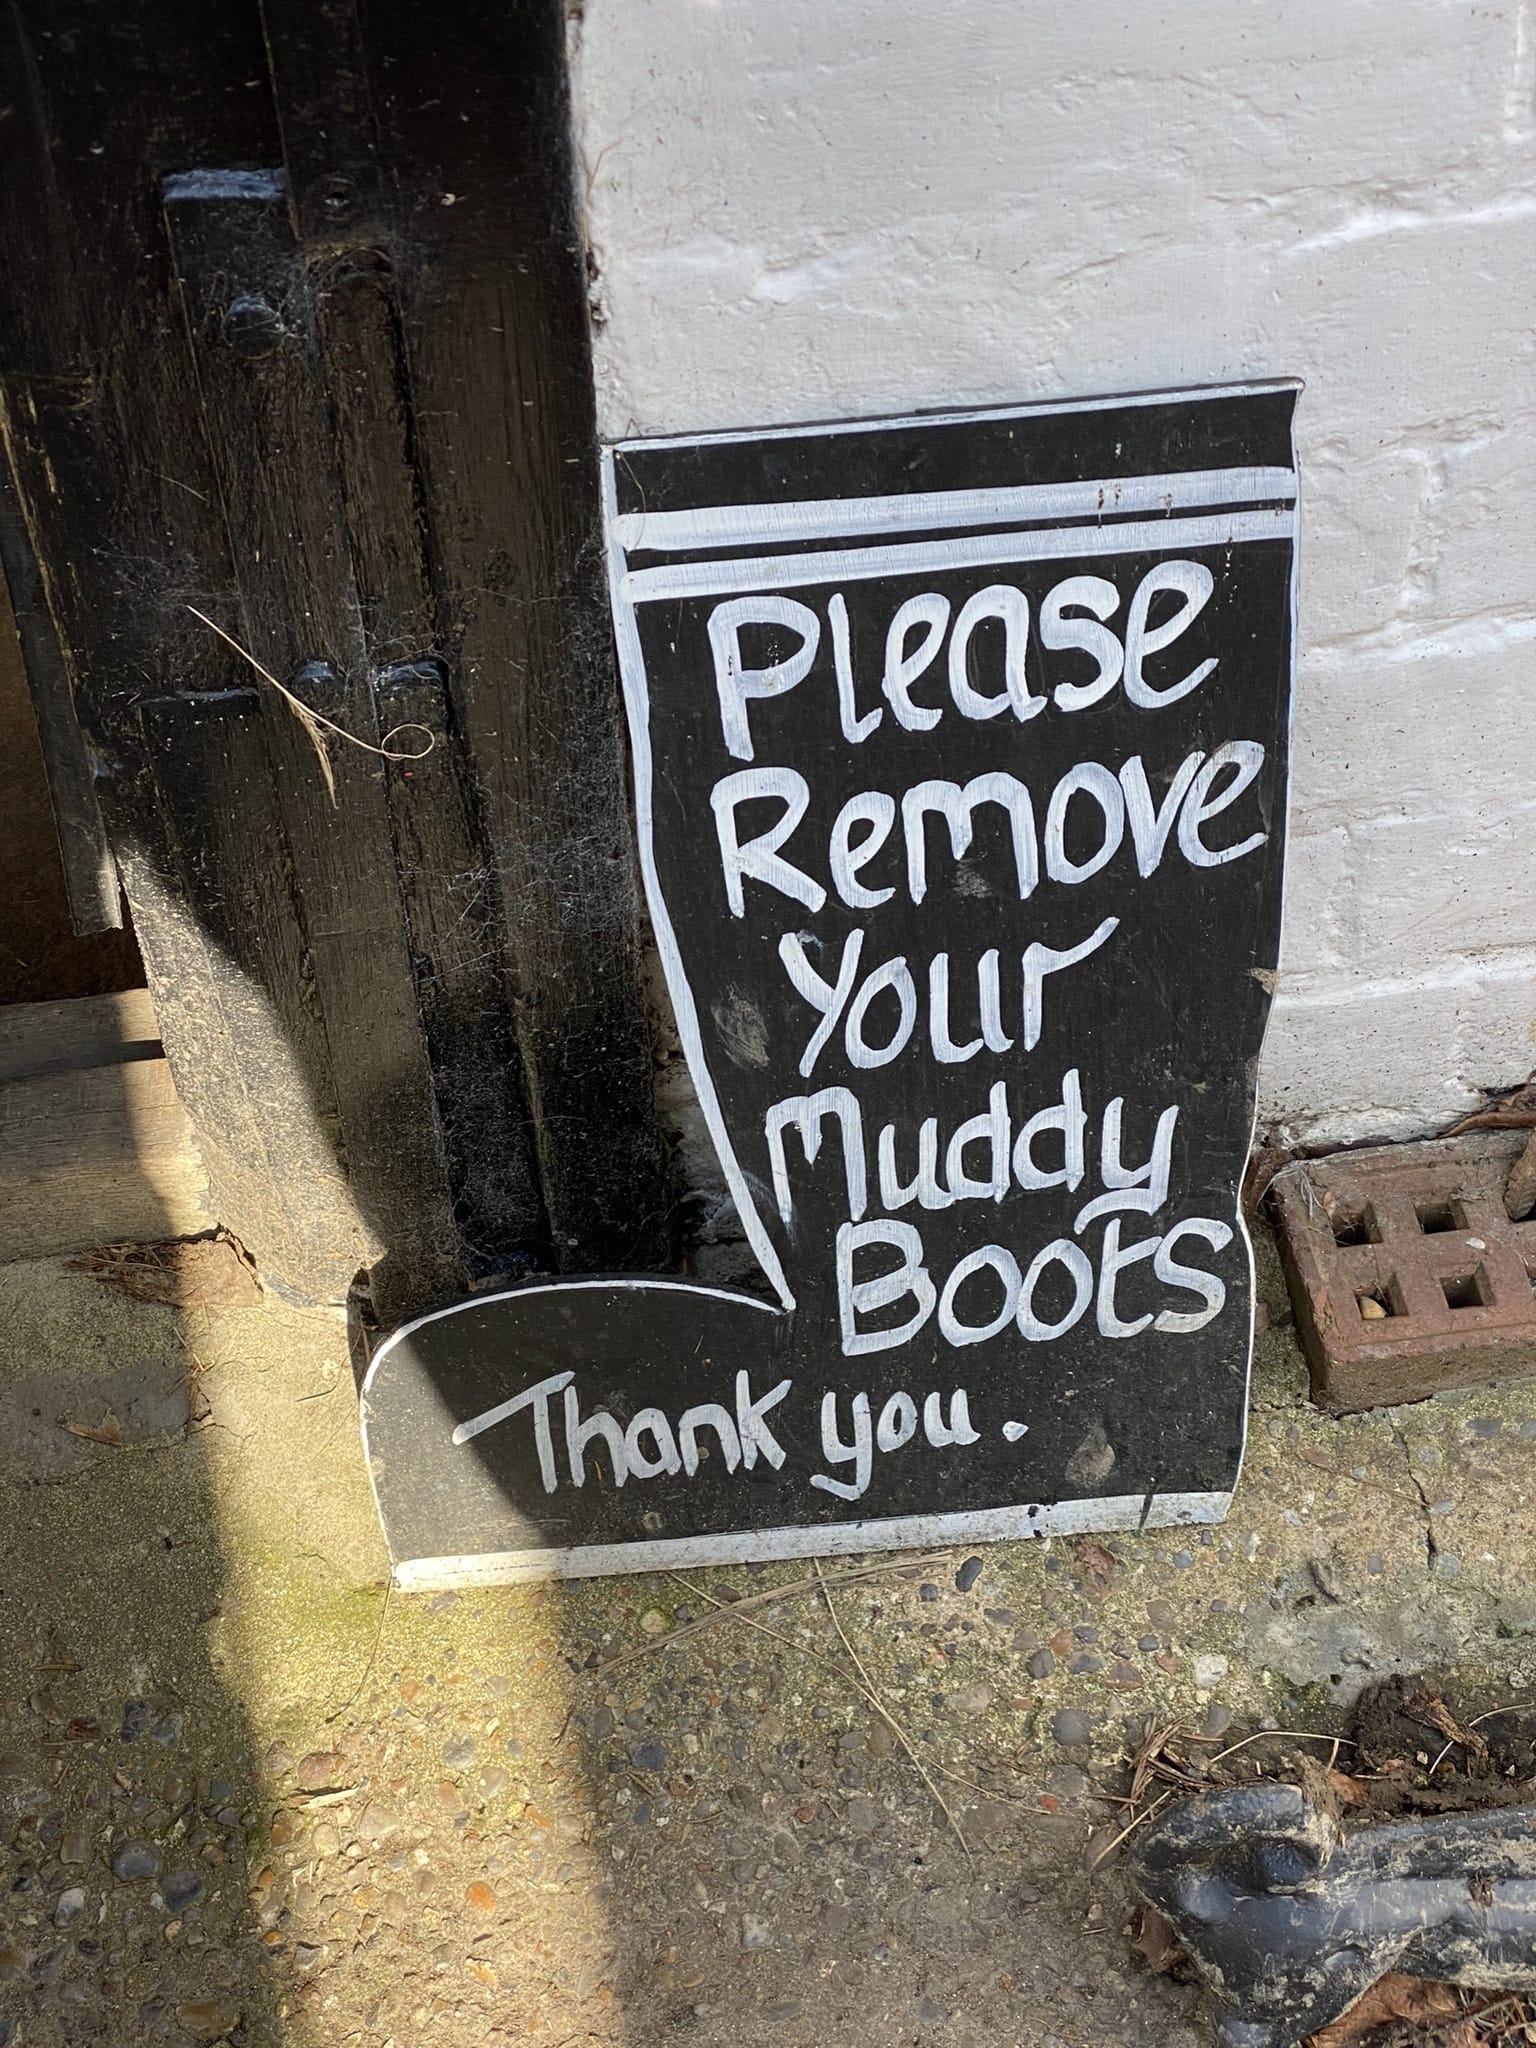 Please
Remove
Your
Muddy
Boots
Thank you.